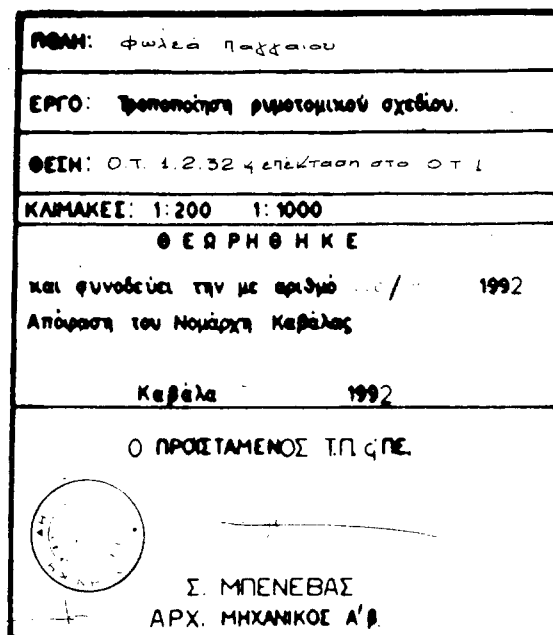 ΠΟΛΗ: Φωλεά Παγγαιου
ΕΡΓΟ: Τροποποίηση ρυμοτομικού σχεδίου.
ΘΕΣΗ: Ο.Τ. 1.2.32 ς επέκταση στο Ο Τ 1
ΚΛΙΜΑΚΕΣ: 1:200 1:1000
ΘΕΩΡΗΘΗΚΕ
και συνοδεύει την με αριθμό / 1992
Απόφαση του Νομάρχη Καβάλας
Καβάλα 1992
Ο ΠΡΟΪΣΤΑΜΕΝΟΣ Τ.Π. ς ΠΕ.
Σ. ΜΠΕΝΕΒΑΣ
ΑΡΧ. ΜΗΧΑΝΙΚΟΣ Α'β.